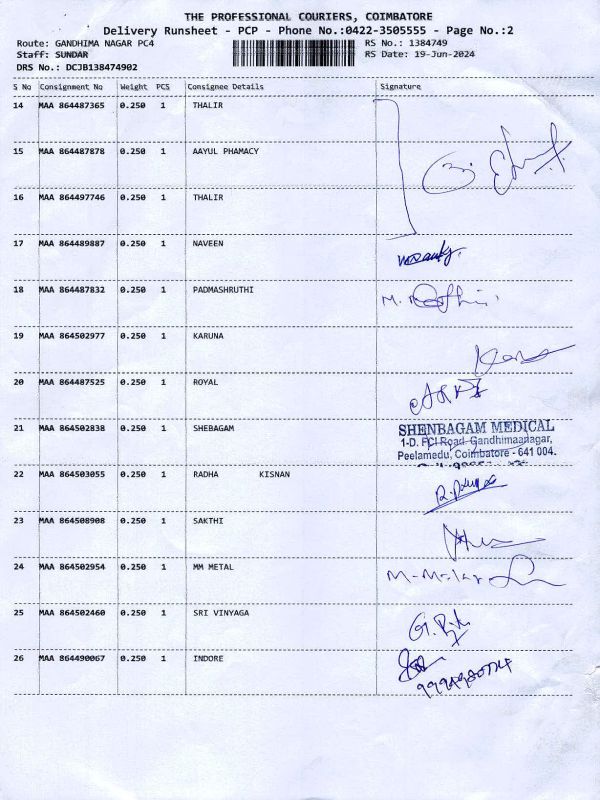 THE PROFESSIONAL COURIERS, COIMBATORE
Delivery Runsheet - PCP - Phone No.:0422-3505555 - Page No.:2
Route: GANDHIMA NAGAR PC4 RS No.: 1384749
Staff: SUNDAR RS Date: 19-Jun-2024
DRS No.: DCJB138474902
S No Consignment No Weight PCS Consignee Details Signature
14 MAA 864487365 0.250 1 THALIR
15 MAA 864487878 0.250 1 AAYUL PHAMACY
16 MAA 864497746 0.250 1 THALIR
17 MAA 864489887 0.250 1 NAVEEN
18 MAA 864487832 0.250 1 PADMASHRUTHI
19 MAA 864502977 0.250 1 KARUNA
20 MAA 864487525 0.250 1 ROYAL
21 MAA 864502838 0.250 1 SHEBAGAM
SHENBAGAM MEDICAL
1-D. FCI Road. Gandhimaanagar,
Peelamedu, Coimbatore - 641 004.
22 MAA 864503055 0.250 1 RADHA KISNAN
23 MAA 864508908 0.250 1 SAKTHI
24 MAA 864502954 0.250 1 MM METAL
25 MAA 864502460 0.250 1 SRI VINYAGA
26 MAA 864490067 0.250 1 INDORE